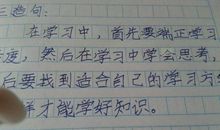 三造句:
在学习中,首先要端正学习
态度,然后在学习中学会思考,
后要找到适合自己的学习方
样才能学好知识。